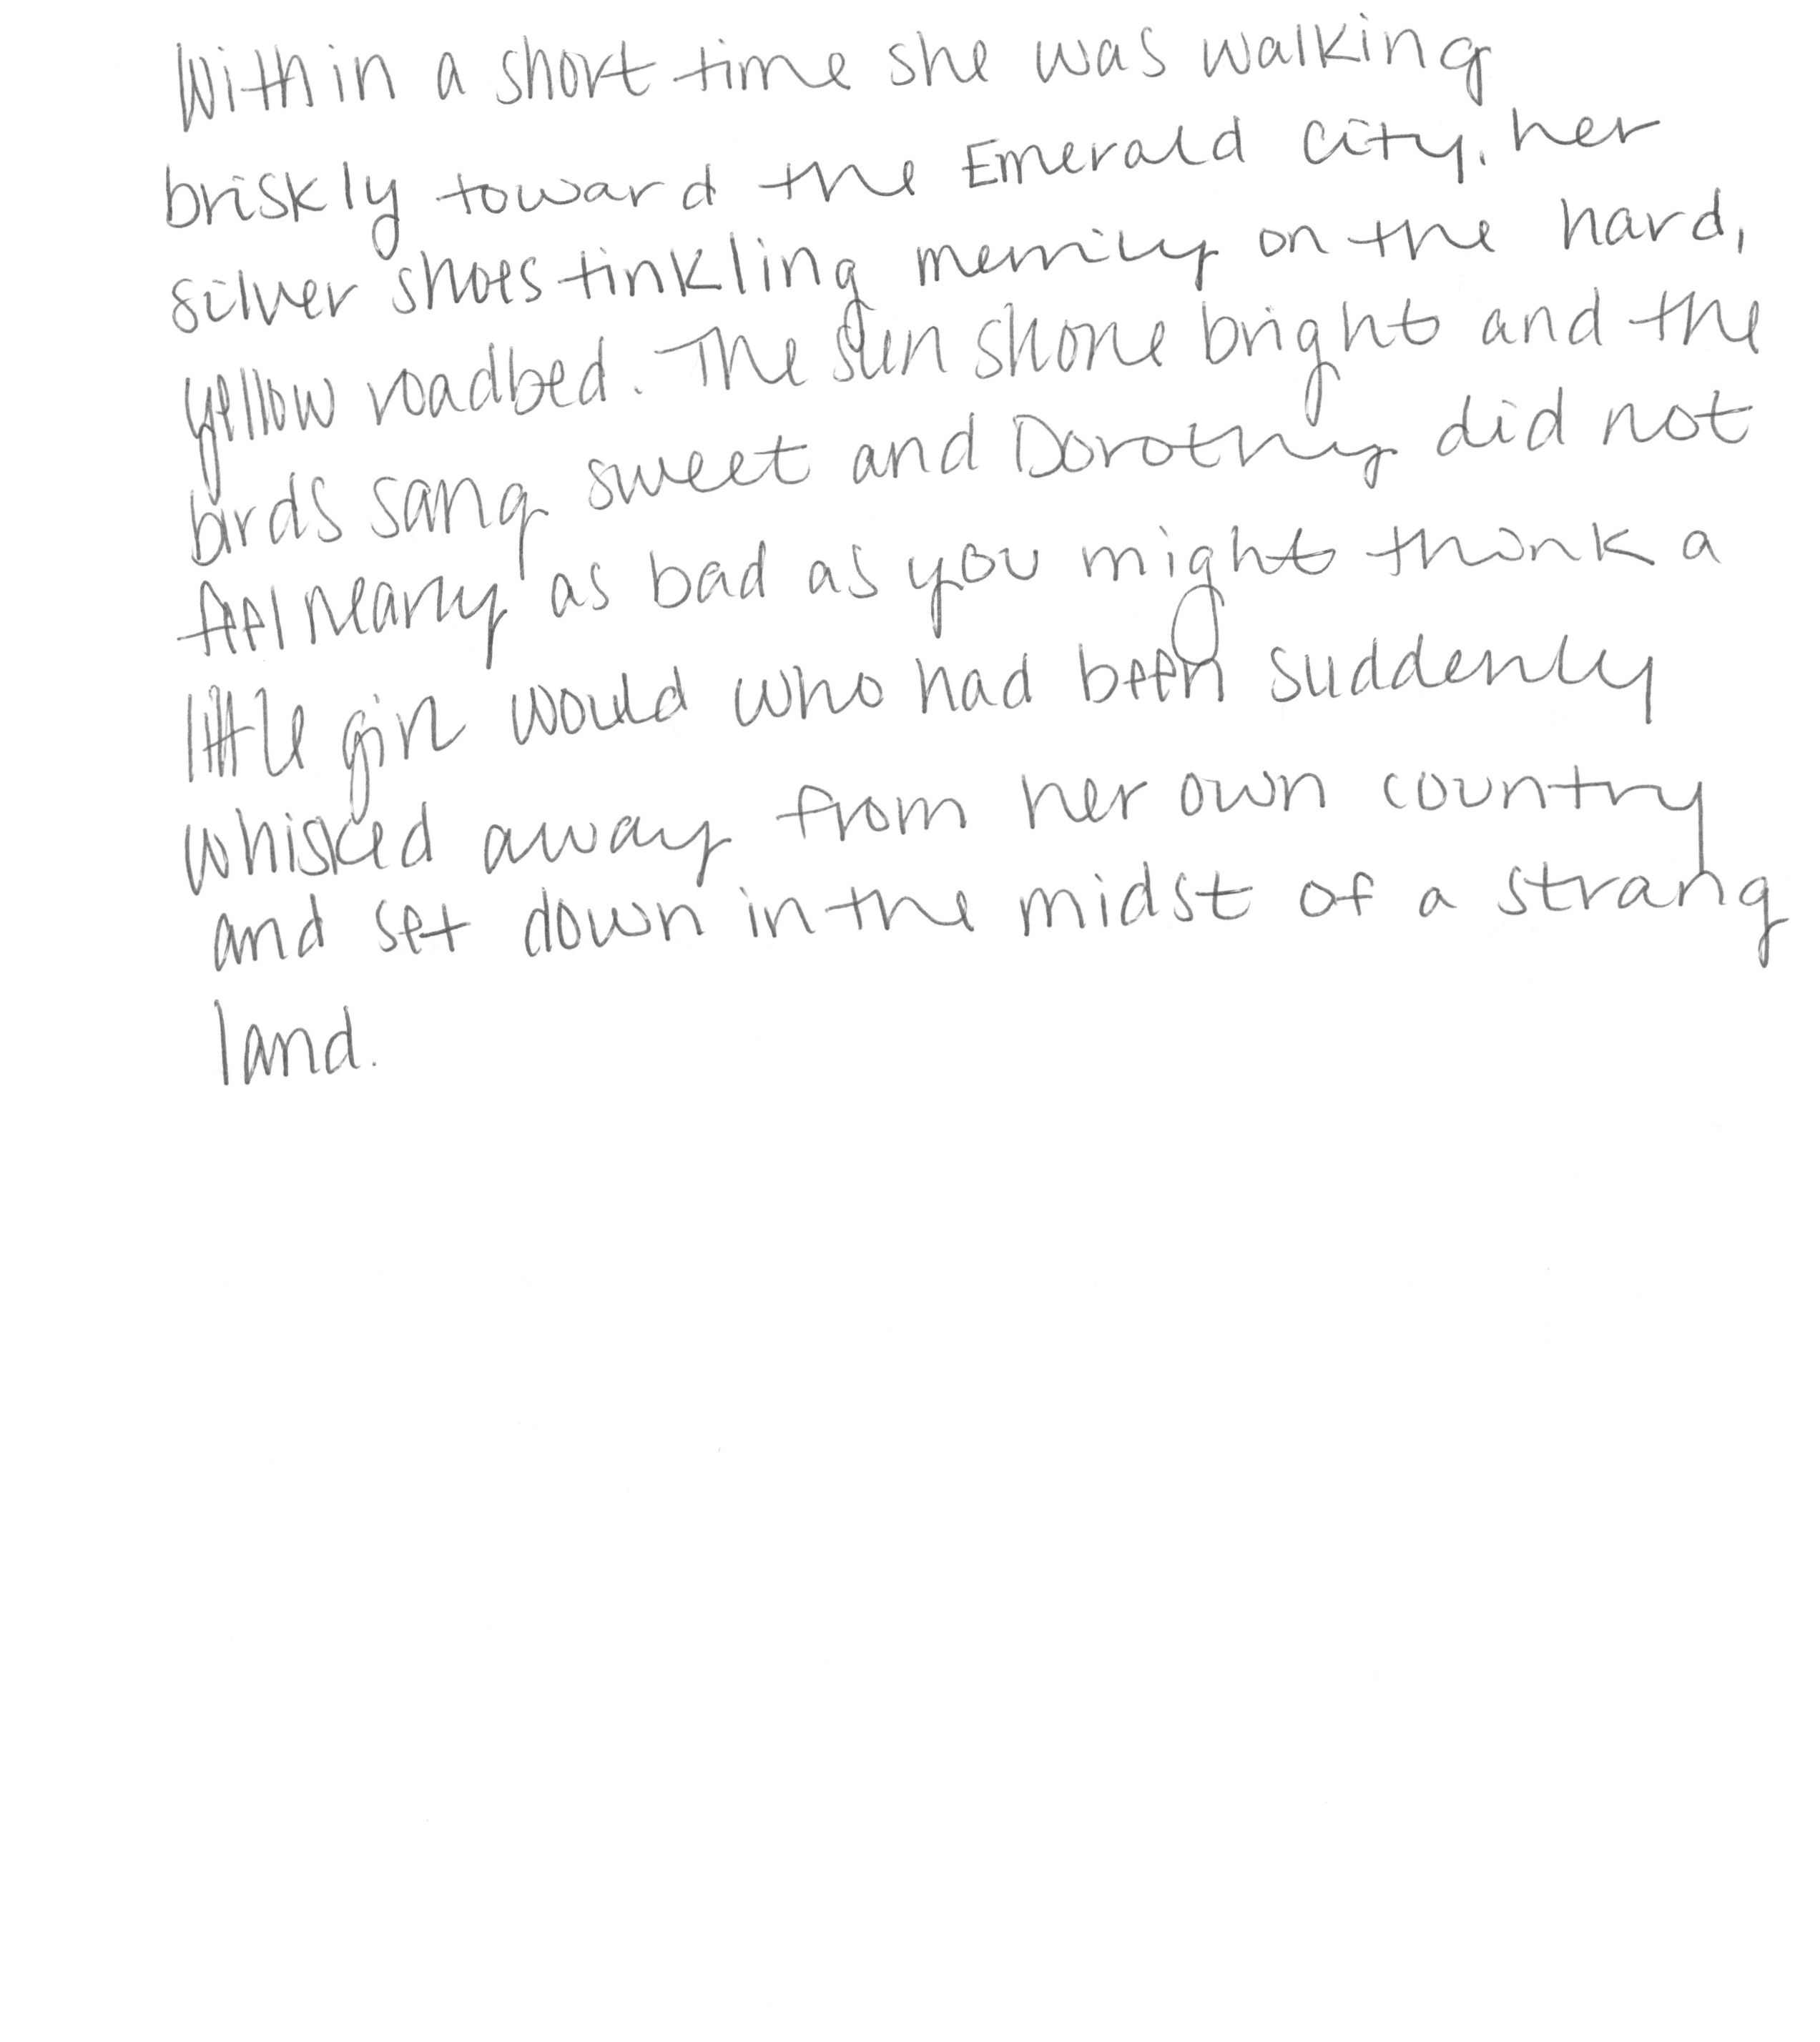 Within a short time she was walking
briskly toward the Emerald City, her
silver shoes tinkling merrily on the hard,
yellow roadbed. The sun shone bright and the
birds sang sweet and Dorothy did not
feel nearly as bad as you might think a
little girl would who had been suddenly
whisked away from her own country
and set down in the midst of a strang
land.